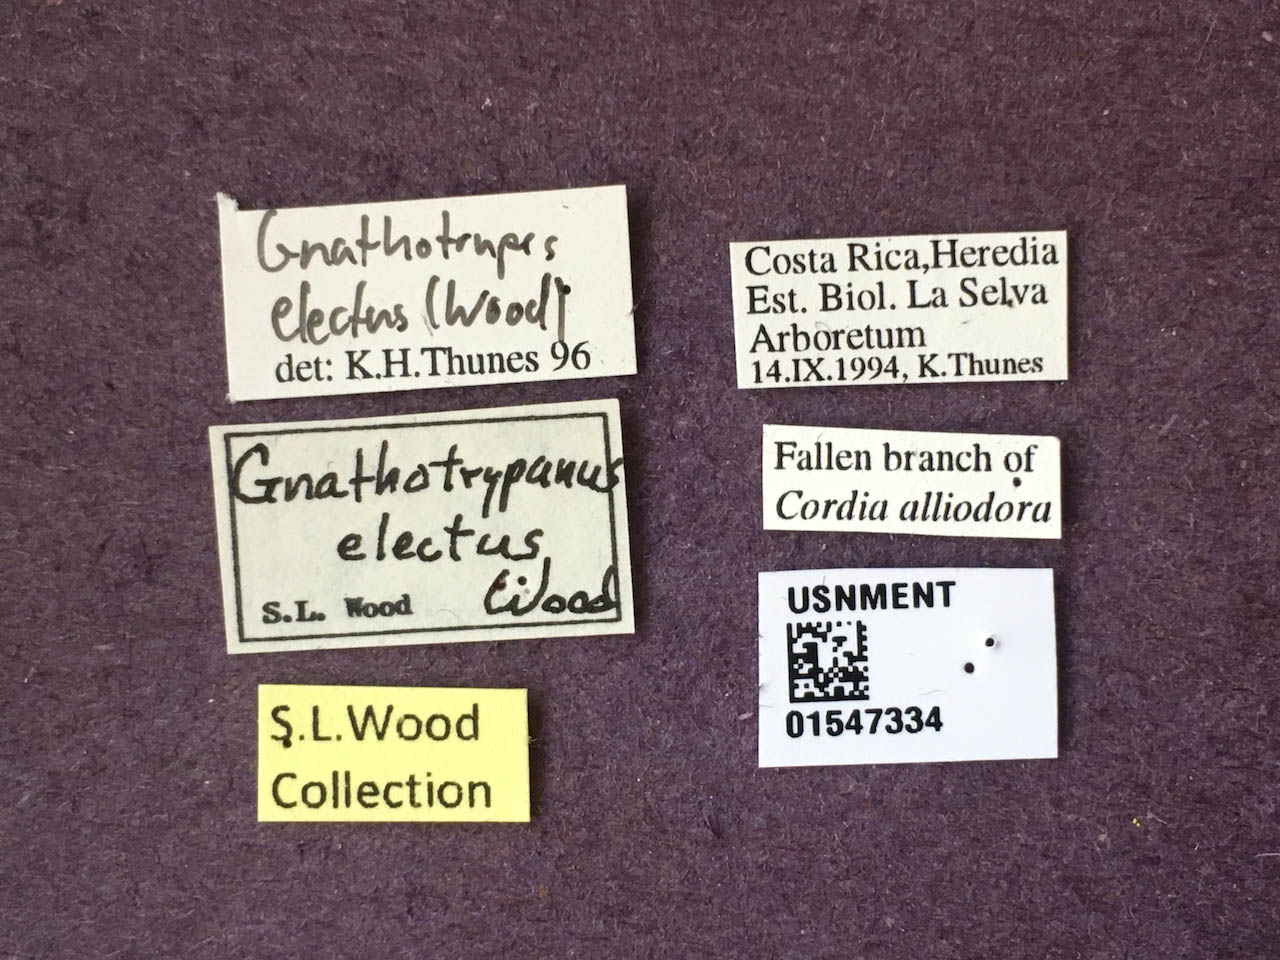 Gnathotrupes
electus (Wood)
det: K.H.Thunes 96
Gnathotrypanus
electus
Wood
S.L. Wood
S.L.Wood
Collection
Costa Rica,Heredia
Est. Biol. La Selva
Arboretum
14.IX.1994, K.Thunes
Fallen branch of
Cordia alliodora
USNMENT
01547334